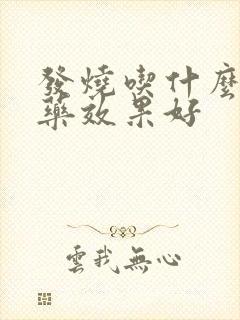 發燒喫什麼
藥效果好
雲我無心